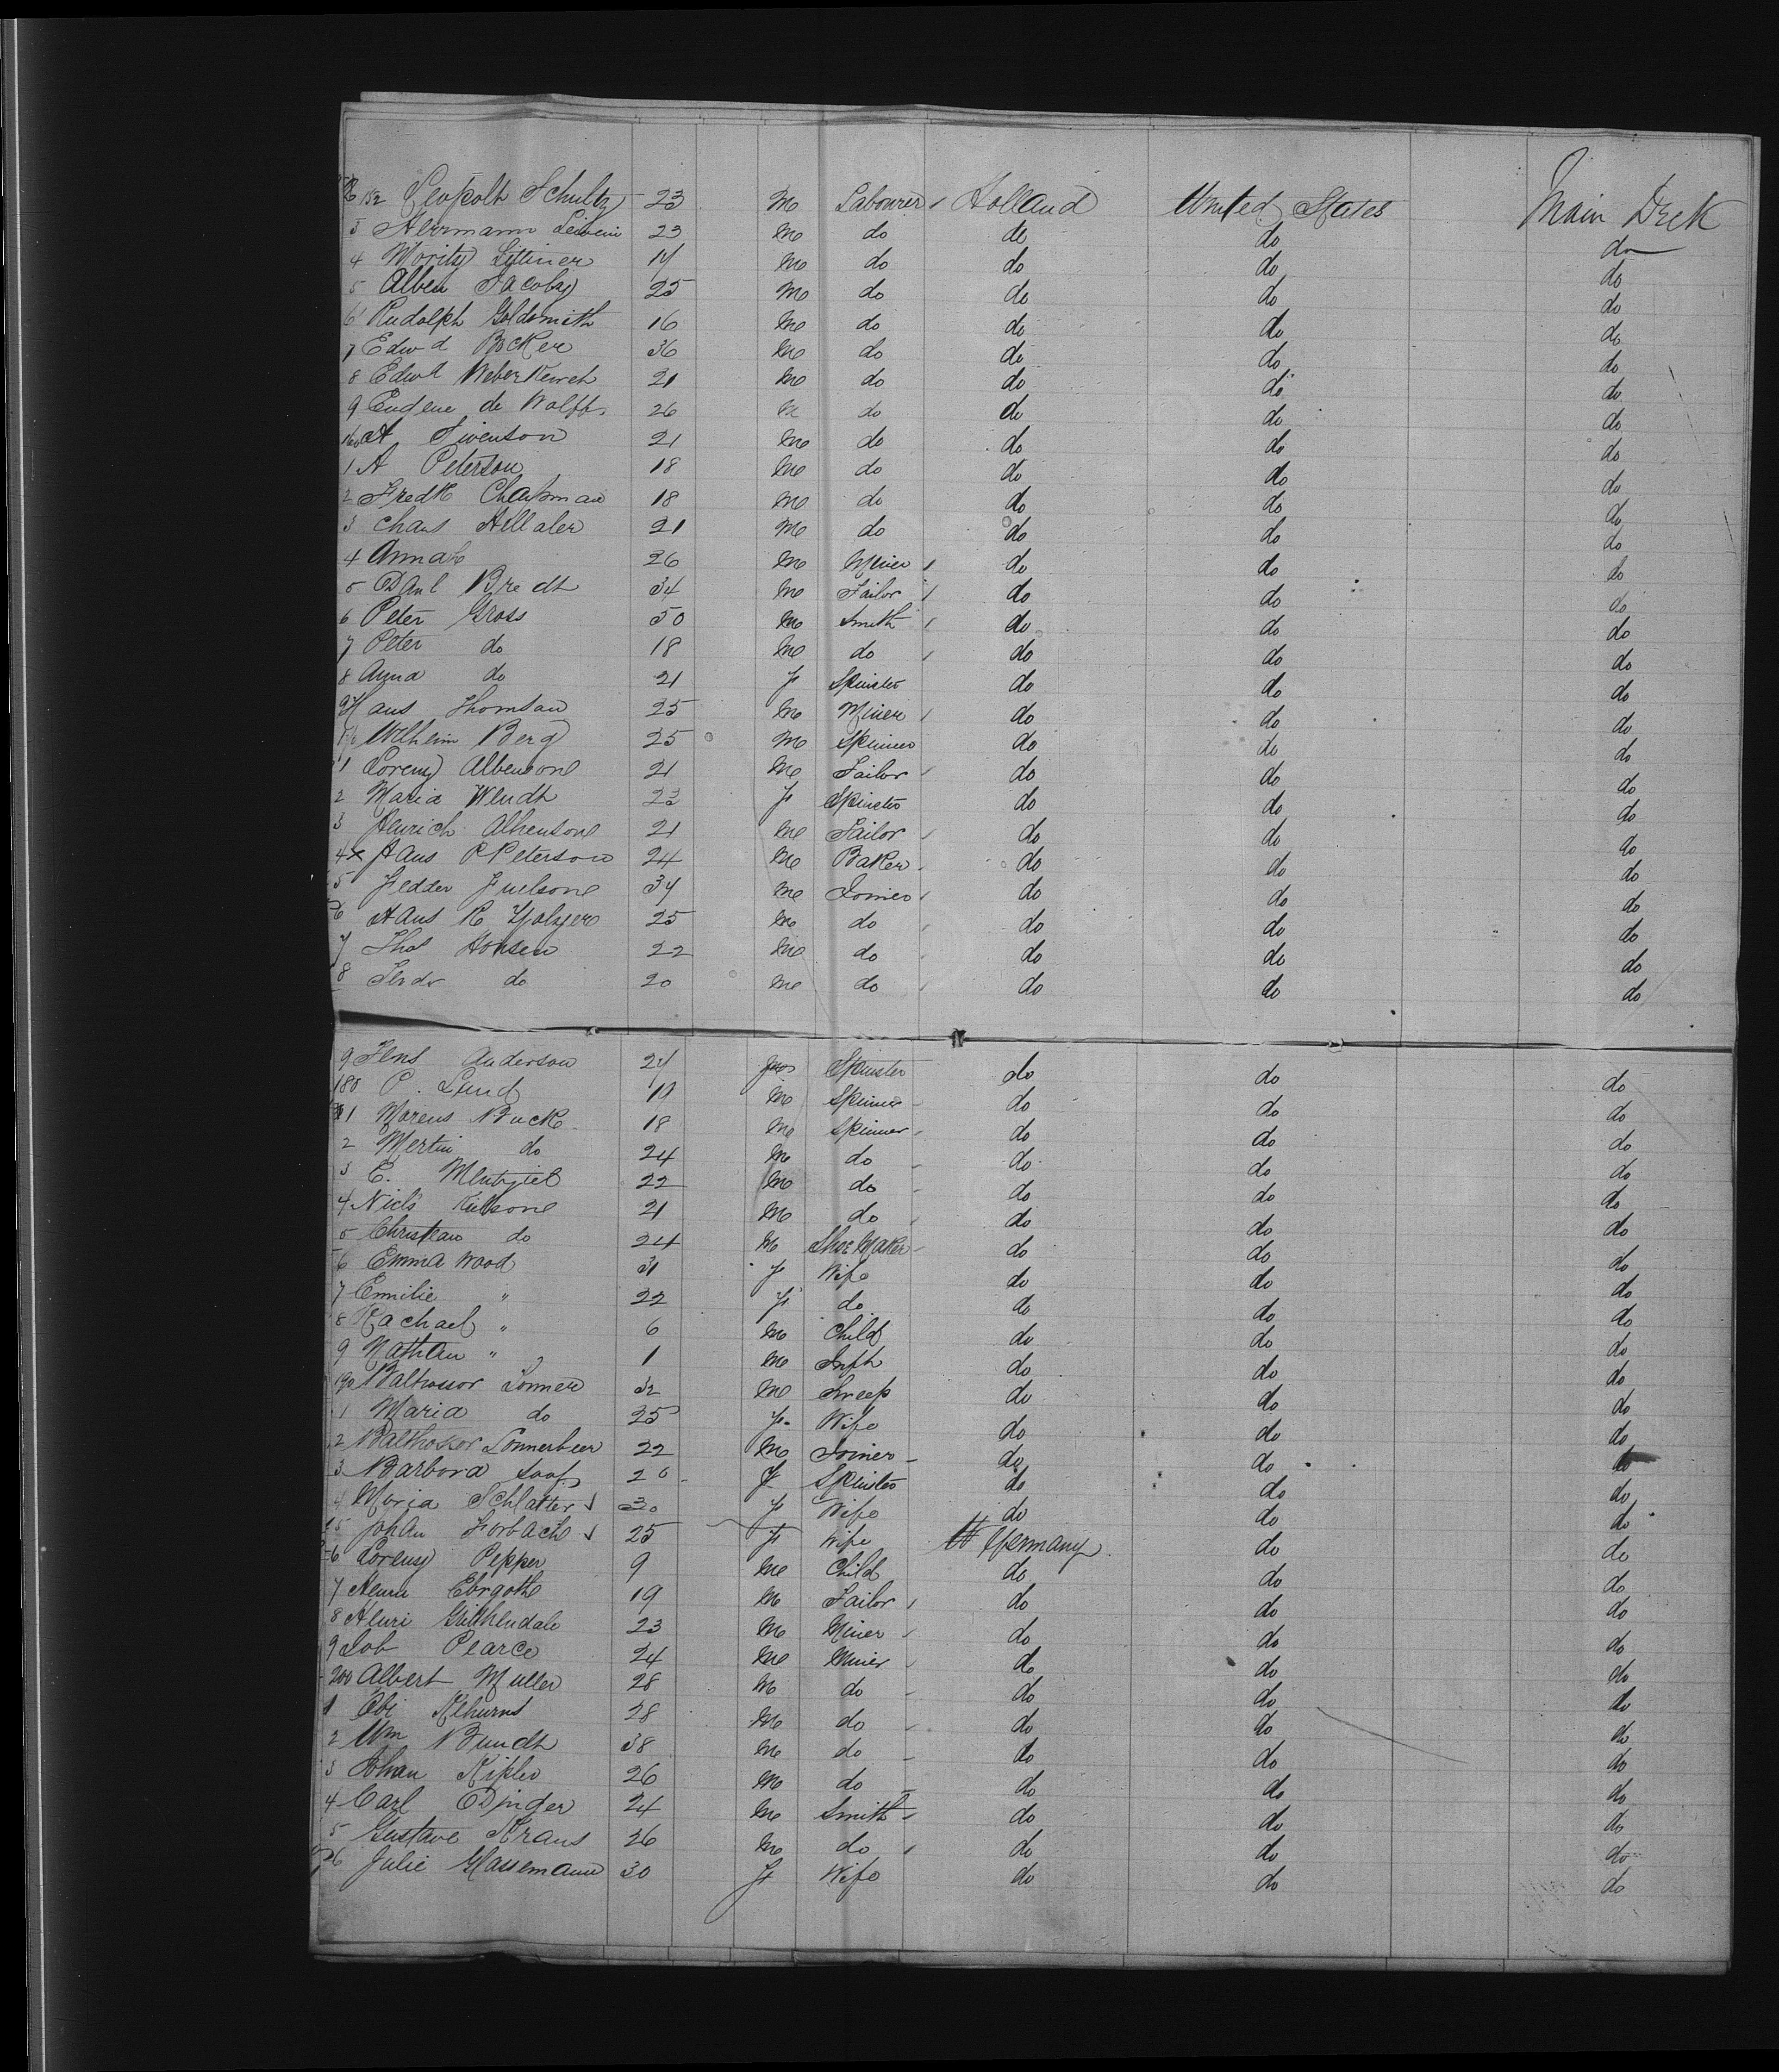 152 Leopolt Schultz 23 M Labourer Holland United States Main Deck
3 Herrmann 23 M do do do do
4 Moritz Littiner 14 M do do do do
5 Alben Jacoby 25 M do do do do
6 Rudolph Goldsmith 16 M do do do do
7 Edwd Backer 36 M do do do do
8 Edwd 21 M do do do do
9 Eugene de Wolff 26 M do do do do
160 A Swenson 21 M do do do do
1 A Peterson 18 M do do do do
2 Fredk Chapman 18 M do do do do
3 Chans 21 M do do do do
4 26 M Miner do do do
5 Danl Bredt 34 M Tailor do do do
6 Peter Gross 50 M Smith do do do
7 Peter do 18 M do do do do
8 Anna do 21 F Spinster do do do
9 Hans Thomsan 25 M Miner do do do
Wilheim Berg 25 M Spinner do do do
1 Lorenz 21 M Tailor do do do
2 Maria Wendt 23 F Spinster do do do
3 Henrich 21 M Tailor do do do
4 x Hans P Peterson 24 M Baker do do do
5 Fedder Juelsone 34 M Joiner do do do
6 Hans R 25 M do do do do
7 Thos Honsen 22 M do do do do
8 do 20 M do do do do
9 Jens Anderson 24 Spinster do do do
180 P. Lund 19 M Spinner do do do
1 Marcus Buck 18 M Spinner do do do
2 Mertin do 24 M do do do do
3 C. 22 M do do do do
4 Niels 21 M do do do do
5 Christian do 24 M Shoe Maker do do do
6 Emma Wood 31 F Wife do do do
7 Emilie " 22 F do do do do
8 Rachael " 6 M Child do do do
9 Nathan " 1 M Inft do do do
190 Balthassor 32 M Sweep do do do
1 Maria do 25 F Wife do do do
2 Balthossor Sonnerbeer 22 M Joiner do do do
3 Barbora 20 F Spinster do do do
4 Maria Schlatter 30 F Wife do do do
5 Johan Forbach 25 F Wife Germany do do
6 Lorenz Pepper 9 M Child do do do
7 Henri 19 M Tailor do do do
8 Henri 23 M Miner do do do
9 Job Pearce 24 M Miner do do do
200 Albert Muller 28 M do do do do
1 28 M do do do do
2 Wm Bundt 38 M do do do do
3 Johan Kipler 26 M do do do do
4 Carl 24 M Smith do do do
5 Gustave Kraus 26 M do do do do
6 Julie Glassemann 30 F Wife do do do